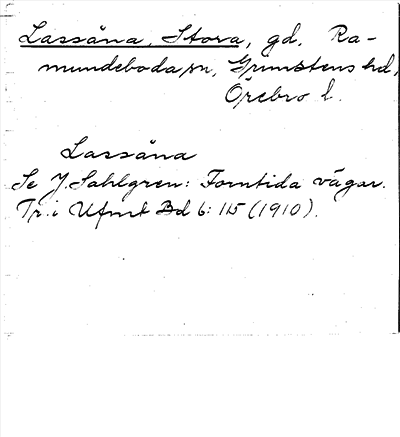 Lassåna, Stora, gd, Ra-
mundeboda sn, Grimstens hd,
Örebro l.
Lassåna
Se J. Sahlgren: Forntida vägar.
Tr. i Ufmt Bd 6: 115 (1910).